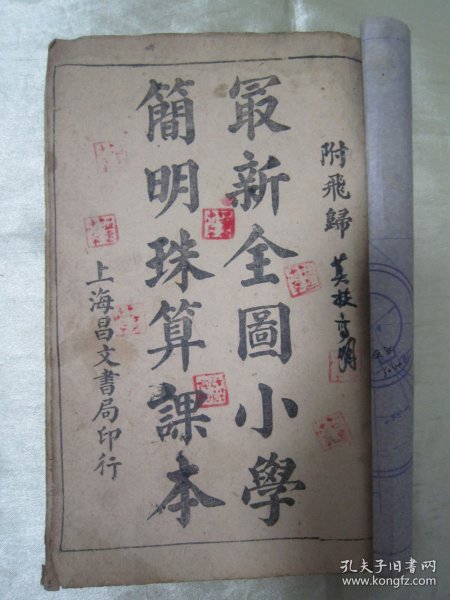 附飛歸
最新全圖小學
簡明珠算課本
上海昌文書局印行
孔夫子旧书网
www.kongfz.com